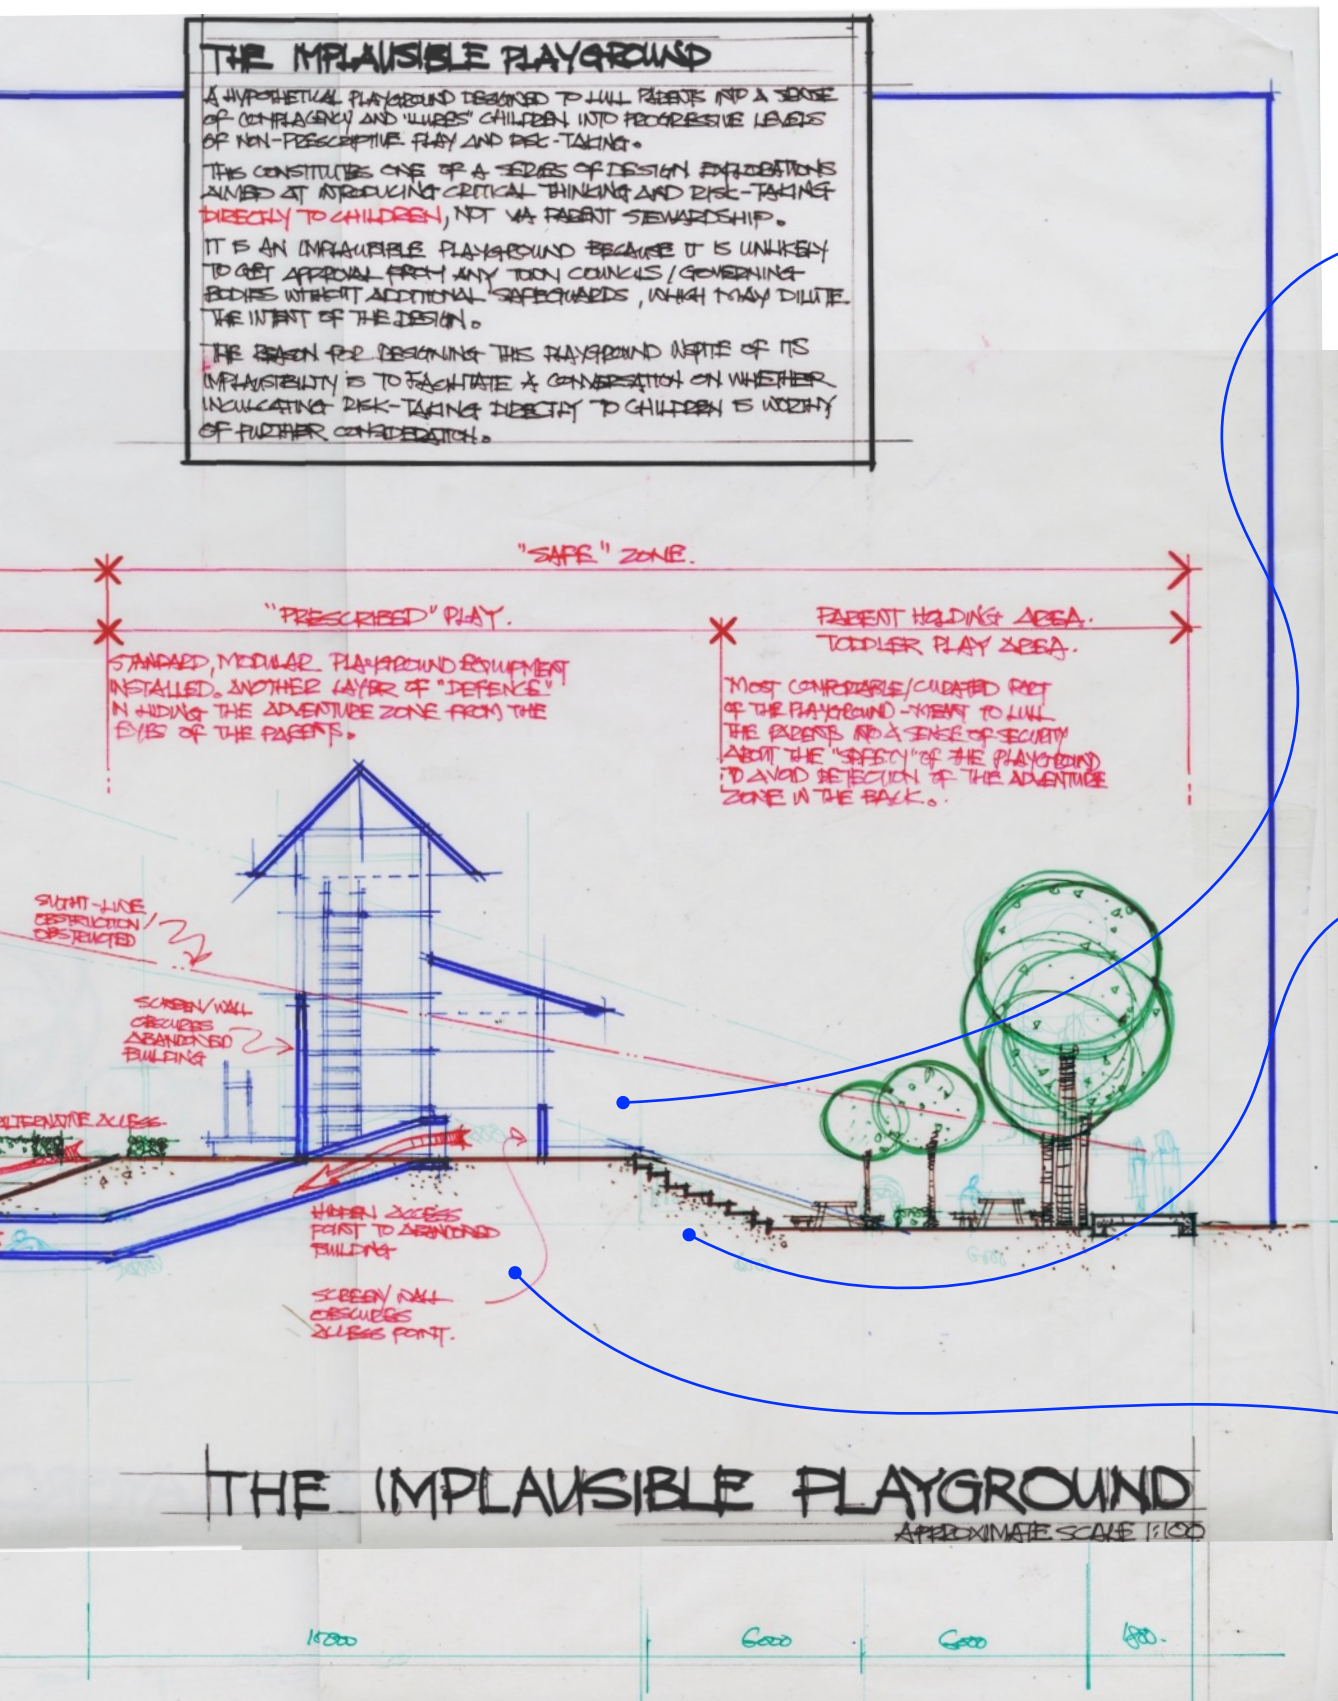 THE IMPLAUSIBLE PLAYGROUND
A HYPOTHETICAL PLAYGROUND DESIGNED TO LULL PARENTS INTO A SENSE
OF COMPLACENCY AND "LURES" CHILDREN INTO PROGRESSIVE LEVELS
OF NON-PRESCRIPTIVE PLAY AND RISK-TAKING.
THIS CONSTITUTES ONE OF A SERIES OF DESIGN EXPLORATIONS
AIMED AT INTRODUCING CRITICAL THINKING AND RISK-TAKING
DIRECTLY TO CHILDREN, NOT VIA PARENT STEWARDSHIP.
IT IS AN IMPLAUSIBLE PLAYGROUND BECAUSE IT IS UNLIKELY
TO GET APPROVAL FROM ANY TOWN COUNCILS/GOVERNING
BODIES WITHOUT ADDITIONAL SAFEGUARDS, WHICH MAY DILUTE
THE INTENT OF THE DESIGN.
THE REASON FOR DESIGNING THIS PLAYGROUND INSPITE OF ITS
IMPLAUSIBILITY IS TO FACILITATE A CONVERSATION ON WHETHER
INCULCATING RISK-TAKING DIRECTLY TO CHILDREN IS WORTHY
OF FURTHER CONSIDERATION.
"SAFE" ZONE.
"PRESCRIBED" PLAY.
PARENT HOLDING AREA.
TODDLER PLAY AREA.
STANDARD, MODULAR PLAYGROUND EQUIPMENT
INSTALLED. ANOTHER LAYER OF "DEFENCE"
IN HIDING THE ADVENTURE ZONE FROM THE
EYES OF THE PARENTS.
MOST COMFORTABLE/CURATED PART
OF THE PLAYGROUND - MEANT TO LULL
THE PARENTS INTO A SENSE OF SECURITY
ABOUT THE "SAFETY" OF THE PLAYGROUND
TO AVOID DETECTION OF THE ADVENTURE
ZONE IN THE BACK.
SIGHT-LINE
OBSTRUCTION/
OBSTRUCTED
SCREEN/WALL
OBSCURES
ABANDONED
BUILDING
ALTERNATIVE ACCESS
HIDDEN ACCESS
POINT TO ABANDONED
BUILDING
SCREEN/WALL
OBSCURES
ACCESS POINT.
THE IMPLAUSIBLE PLAYGROUND
APPROXIMATE SCALE 1:100
6000
6000